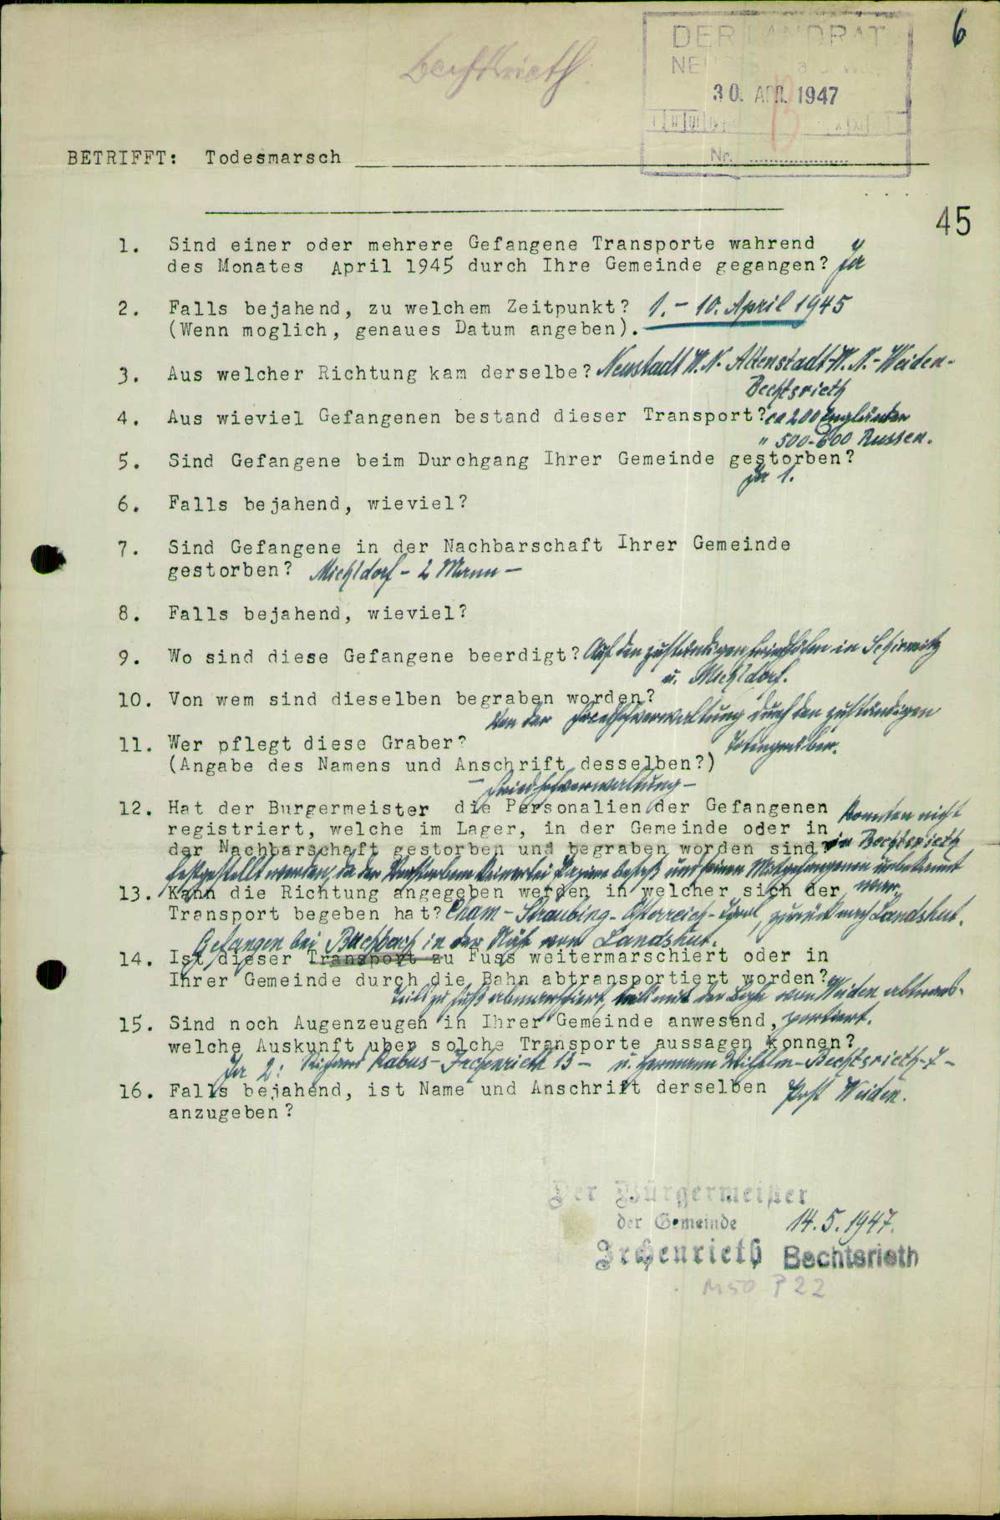 6
Bechtsrieth
DER LANDRAT
30. APR. 1947
Nr.
BETRIFFT: Todesmarsch
45
1. Sind einer oder mehrere Gefangene Transporte wahrend
des Monates April 1945 durch Ihre Gemeinde gegangen? Ja
2. Falls bejahend, zu welchem Zeitpunkt? 1. - 10. April 1945
(Wenn moglich, genaues Datum angeben).
3. Aus welcher Richtung kam derselbe? Neustadt W.N. Altenstadt W.N. - Weiden -
Bechtsrieth
4. Aus wieviel Gefangenen bestand dieser Transport? ca 200 Engländer
" 500-600 Russen.
5. Sind Gefangene beim Durchgang Ihrer Gemeinde gestorben?
Ja 1.
6. Falls bejahend, wieviel?
7. Sind Gefangene in der Nachbarschaft Ihrer Gemeinde
gestorben? Michldorf - 2 Mann -
8. Falls bejahend, wieviel?
9. Wo sind diese Gefangene beerdigt? Auf den zuständigen Friedhöfen in Schirmitz
u. Michldorf.
10. Von wem sind dieselben begraben worden?
Von der Friedhofverwaltung durch den zuständigen
11. Wer pflegt diese Graber? Totengräber.
(Angabe des Namens und Anschrift desselben?)
- Friedhofverwaltung -
12. Hat der Burgermeister die Personalien der Gefangenen konnten nicht
registriert, welche im Lager, in der Gemeinde oder in in Bechtsrieth
der Nachbarschaft gestorben und begraben worden sind?
festgestellt werden, da der Verstorbene keinerlei Papiere besaß und seinen Mitgefangenen unbekannt
13. Kann die Richtung angegeben werden in welcher sich der war.
Transport begeben hat? Cham - Straubing - Österreich - zurück nach Landshut.
Gefangen bei Buchbach in der Näh von Landshut.
14. Ist dieser Transport zu Fuss weitermarschiert oder in
Ihrer Gemeinde durch die Bahn abtransportiert worden?
Teils zu Fuß abmarschiert, teils mit der Bahn von Weiden abtrans-
15. Sind noch Augenzeugen in Ihrer Gemeinde anwesend, portiert.
welche Auskunft uber solche Transporte aussagen konnen?
Ja 2: Richard Rabus - Irchenrieth 13 - u. Hermann Wilhelm - Bechtsrieth - 7 -
16. Falls bejahend, ist Name und Anschrift derselben Post Weiden.
anzugeben?
Der Bürgermeister
der Gemeinde 14.5.1947.
Irchenrieth Bechtsrieth
M50 P22